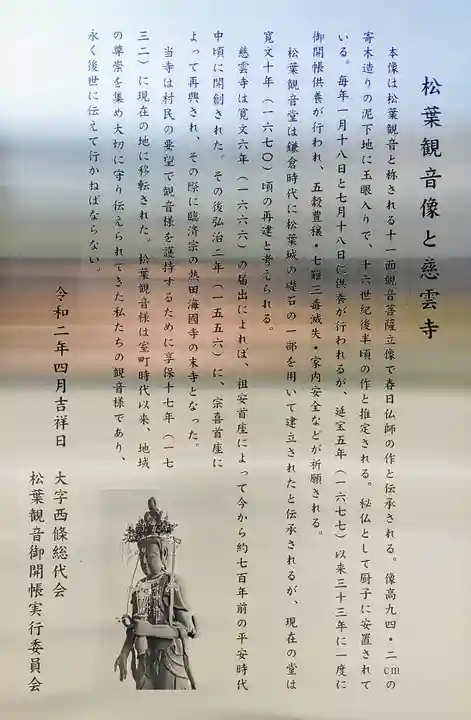 松葉観音像と慈雲寺
本像は松葉観音と称される十一面観音菩薩立像で春日仏師の作と伝承される。像高九四・二cmの
寄木造りの泥下地に玉眼入りで、十六世紀後半頃の作と推定される。秘仏として厨子に安置されて
いる。毎年一月十八日と七月十八日に供養が行われるが、延宝五年（一六七七）以来三十三年に一度に
御開帳供養が行われ、五穀豊穣・七難三毒滅失・家内安全などが祈願される。
松葉観音堂は鎌倉時代に松葉城の礎石の一部を用いて建立されたと伝承されるが、現在の堂は
寛文十年（一六七〇）頃の再建と考えられる。
慈雲寺は寛文六年（一六六六）の届出によれば、祖安首座によって今から約七百年前の平安時代
中頃に開創された。その後弘治二年（一五五六）に、宗喜首座に
よって再興され、その際に臨済宗の熱田海國寺の末寺となった。
当寺は村民の要望で観音様を護持するために享保十七年（一七
三二）に現在の地に移転された。松葉観音様は室町時代以来、地域
の尊崇を集め大切に守り伝えられてきた私たちの観音様であり、
永く後世に伝えて行かねばならない。
令和二年四月吉祥日
大字西條総代会
松葉観音御開帳実行委員会